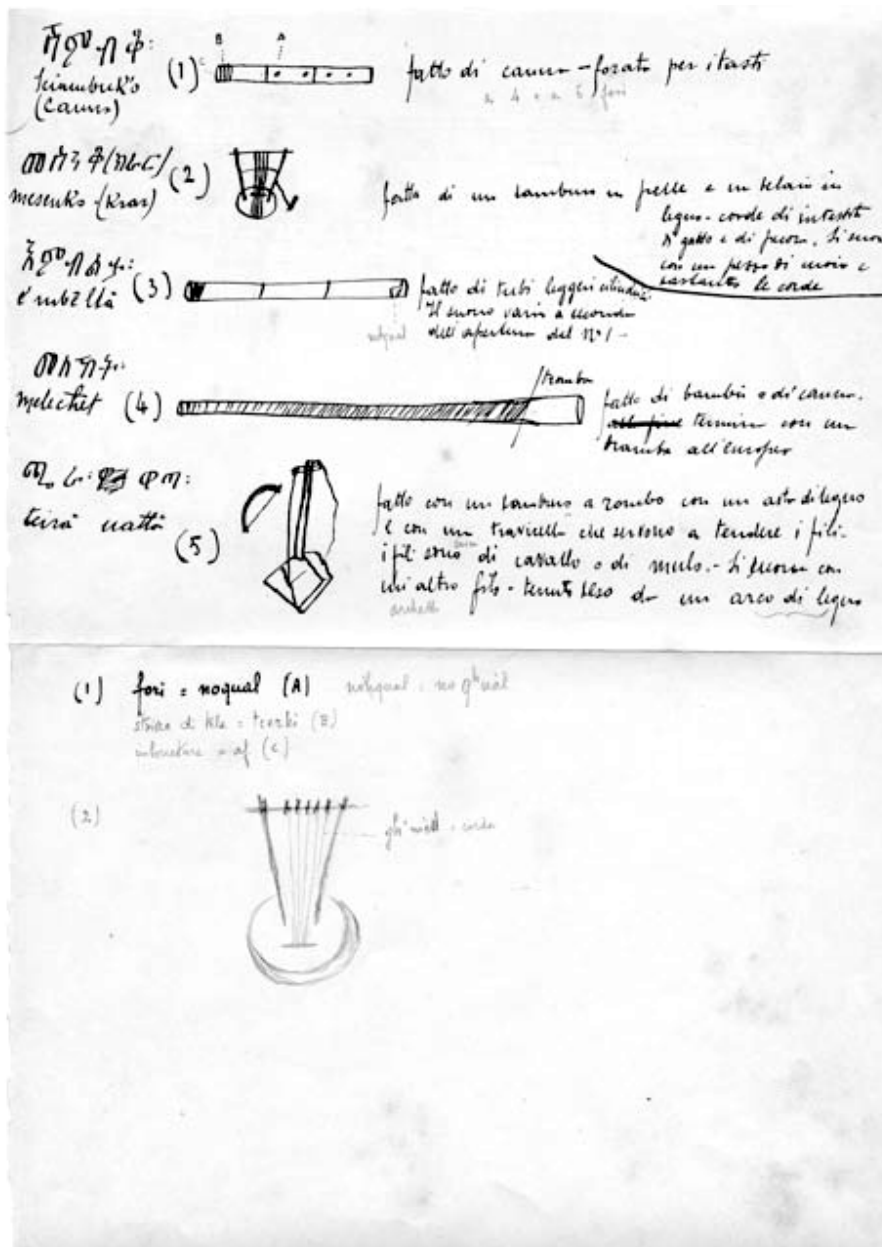 ሸምብቆ:
B A
C
(1)
(Canna)
fatto di canna - forato per i tasti
a 4 o a 5 fori
መሰንቆ (ክራር)
(2)
mesenko (Krar)
fatto di un tamburo in pelle e un telaio in
legno - corde di intestit
di gatto e di pecora. Si suona
con un pezzo di cuoio e
le corde
እምብልታ:
(3)
embiltà
fatto di tubi leggeri cilindrici
Il suono varia a seconda
dell'apertura del n° 1 -
መለከት:
melechet (4)
tromba
fatto di bambù o di canna.
alla fine termina con una
tromba all'europea
ዋጣ:
(5)
fatto con un tamburo a rombo con un asta di legno
e con un travicello che servono a tendere i fili -
i fili sono di cavallo o di mulo. - Si suona con
un altro filo - tenuto teso da un arco di legno
archetto
(1) fori = noqual (A)
striscia di tela = (B)
imboccatura = af (C)
(2)
= corda